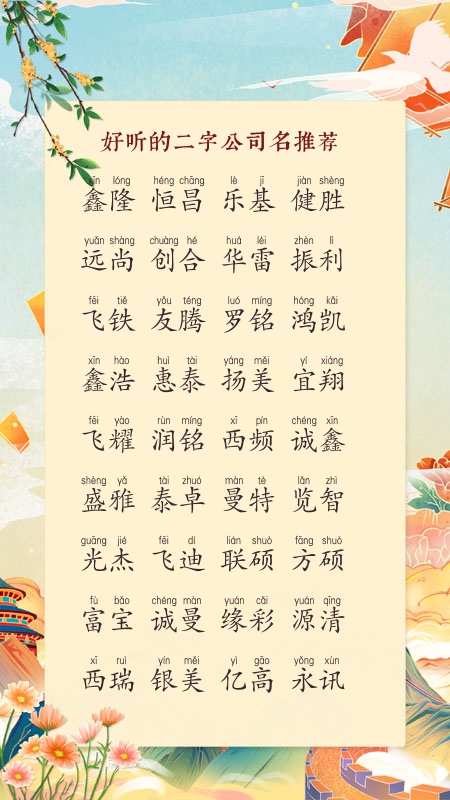 好听的二字公司名推荐
xīn lóng héng chāng lè jī jiàn shèng
鑫隆 恒昌 乐基 健胜
yuǎn shàng chuàng hé huá léi zhèn lì
远尚 创合 华雷 振利
fēi tiě yǒu téng luó míng hóng kǎi
飞铁 友腾 罗铭 鸿凯
xīn hào huì tài yáng měi yí xiáng
鑫浩 惠泰 扬美 宜翔
fēi yào rùn míng xī pín chéng xīn
飞耀 润铭 西频 诚鑫
shèng yǎ tài zhuó màn tè lǎn zhì
盛雅 泰卓 曼特 览智
guāng jié fēi dí lián shuò fāng shuò
光杰 飞迪 联硕 方硕
fù bǎo chéng màn yuán cǎi yuán qīng
富宝 诚曼 缘彩 源清
xī ruì yín měi yì gāo yǒng xùn
西瑞 银美 亿高 永讯